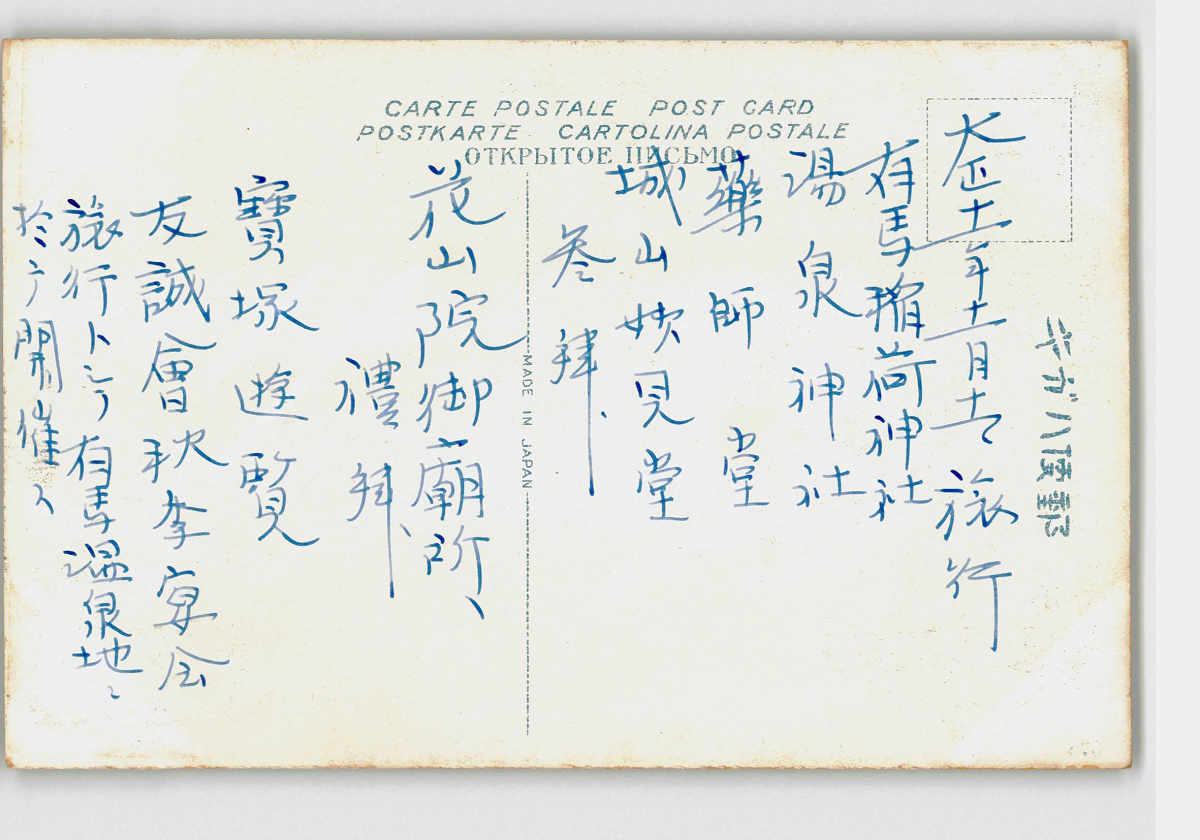 CARTE POSTALE POST CARD
POSTKARTE · CARTOLINA POSTALE
ОТКРЫТОЕ ПИСЬМО
郵便ハガキ
大正十一年十一月 旅行
有馬稲荷神社
湯泉神社
藥師堂
城山妙見堂
参拜、
MADE IN JAPAN
花山院御廟所、
禮拜、
寶塚遊覧
友誠會秋季宴会
旅行トシテ有馬温泉地ニ
於テ開催ス